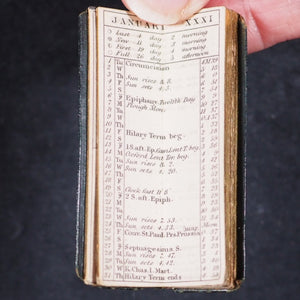 JANUARY XXXI
Last 4 day 2 morning
New 11 day 3 morning
First 19 day 4 morning
Full 26 day 5 afternoon
1 Tu Circumcision
2 W
3 Th Sun rises 8. 8.
4 F Sun sets
5 S
6 F Epiphany Twelfth Day
7 M Plough Mon.
8 Tu
9 W
10 Th
11 F Hilary Term beg.
12 S
13 F 1 S. aft. Ep. Cam. Lent T. beg.
14 M Oxford Len. Ter. beg.
15 Tu Sun rises 8. 2.
16 W Sun sets 4. 20.
17 Th
18 F
19 S Clock fast
20 F 2 S. aft. Epiph.
21 M
22 Tu
23 W Sun rises 7. 53.
24 Th Sun sets 4. 33.
25 F Conv. St. Paul. Prs.
26 S
27 F Septuagesima S.
28 M Sun rises 7. 48.
29 Tu Sun sets 4. 42.
30 W K. Chas. I. Mart.
31 Th Hilary Term ends